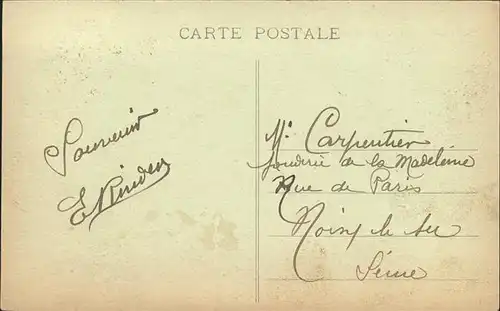 CARTE POSTALE
Souvenir
Mr Carpentier
de la Madeleine
Rue de Paris
Noisy le Sec
Seine